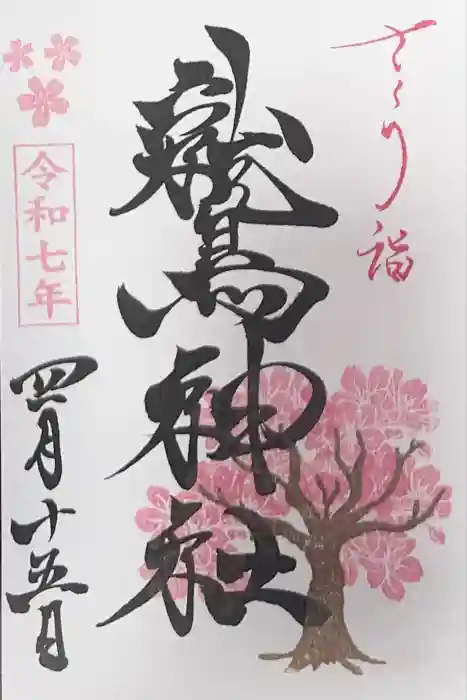 さくら詣
鷲神社
令和七年
四月十五日